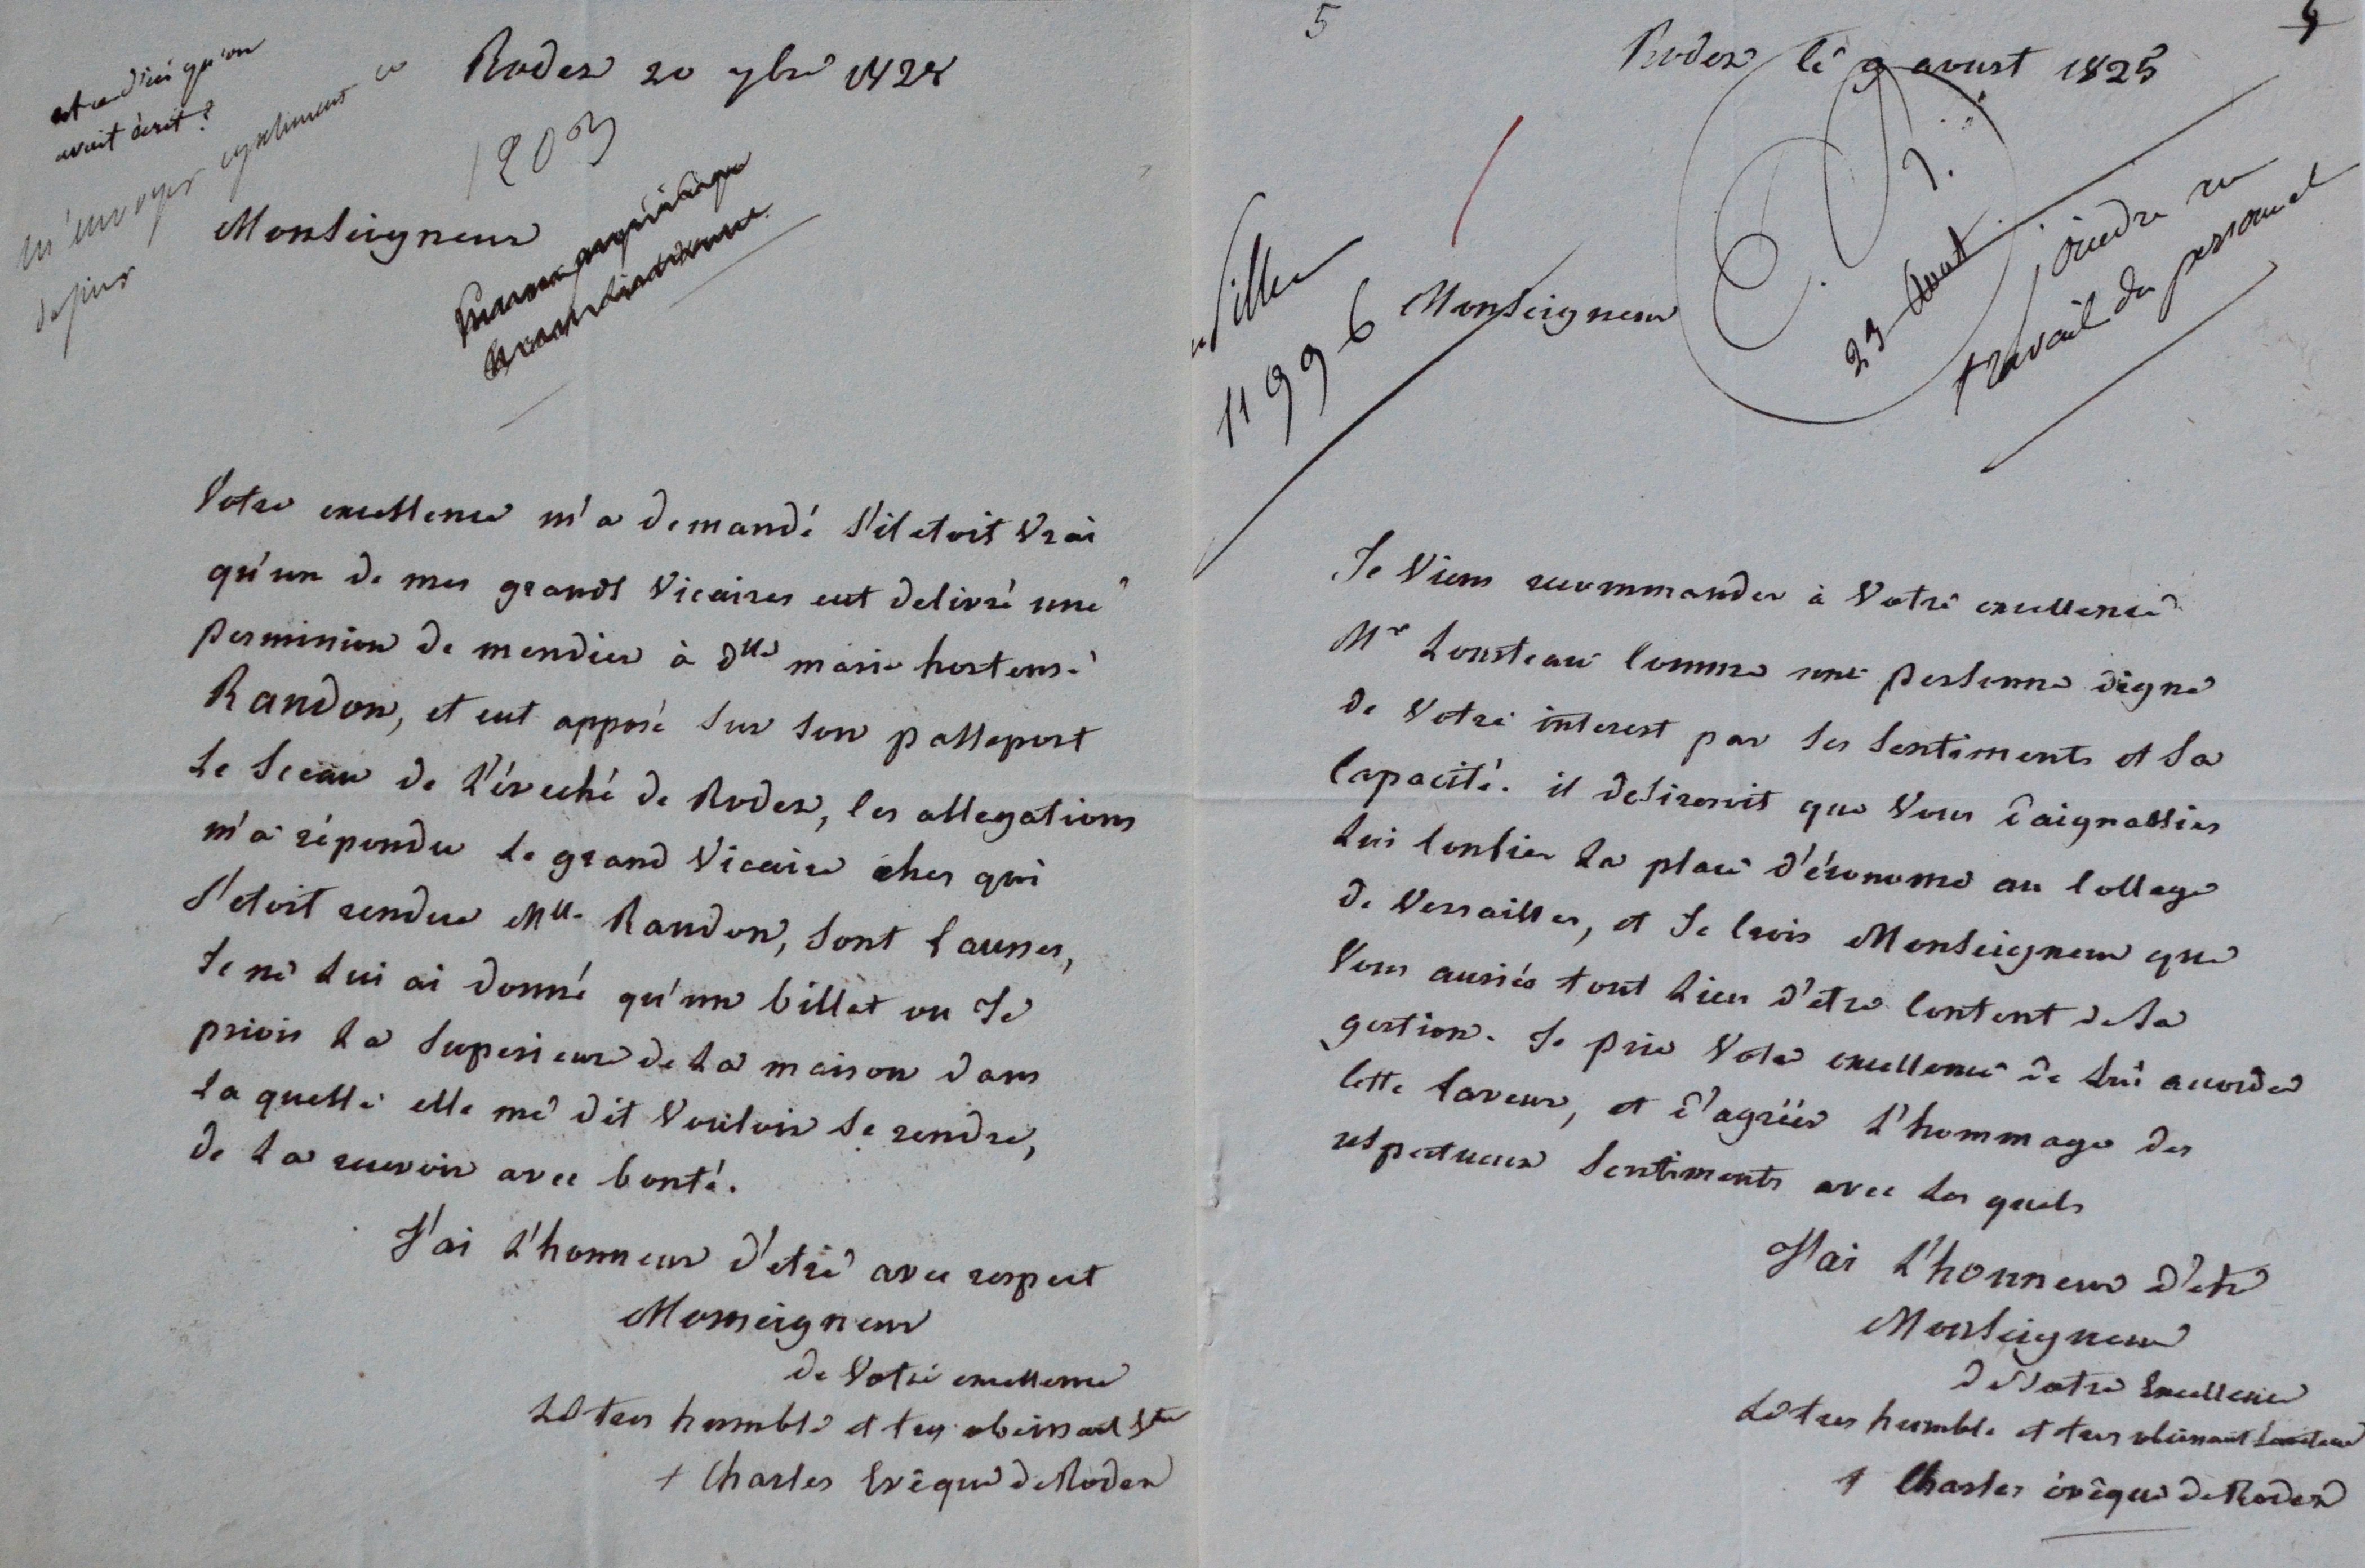 est ce d'ici qu'on
avait écrit?
m'envoyer
depuis
Rodez 20 7bre 1828
1203
Monseigneur
Votre excellence m'a demandé s'il etoit vrai
qu'un de mes grands vicaires eut delivré une
permission de mendier à dlle marie hortense
Randon, et eut apposé sur son passeport
le sceau de l'évêché de Rodez, les allegations
m'a répondu le grand vicaire chez qui
s'etoit rendue Mlle Randon, sont fausses,
je ne lui ai donné qu'un billet ou je
priois la superieure de la maison dans
la quelle elle me dit vouloir se rendre,
de la recevoir avec bonté.
J'ai l'honneur d'etre avec respect
Monseigneur
de votre excellence
Le tres humble et tres obeissant Str
+ Charles Evêque de Rodez
5
Rodez le 9 aoust 1825
11996
Monseigneur
23 Aout
joindre au
travail du personnel
Je viens recommander à votre excellence
Mr comme une personne digne
de votre interest par ses sentiments et sa
capacité. il desireroit que vous daignassiez
lui confier la place d'économe au college
de Versailles, et je crois Monseigneur que
vous auriés tout lieu d'etre content de sa
gestion. Je prie Votre excellence de lui accorder
cette faveur, et d'agréer l'hommage des
respectueux sentiments avec les quels
J'ai l'honneur d'etre
Monseigneur
de Votre Excellence
Le tres humble et tres obeissant serviteur
+ Charles évêque de Rodez